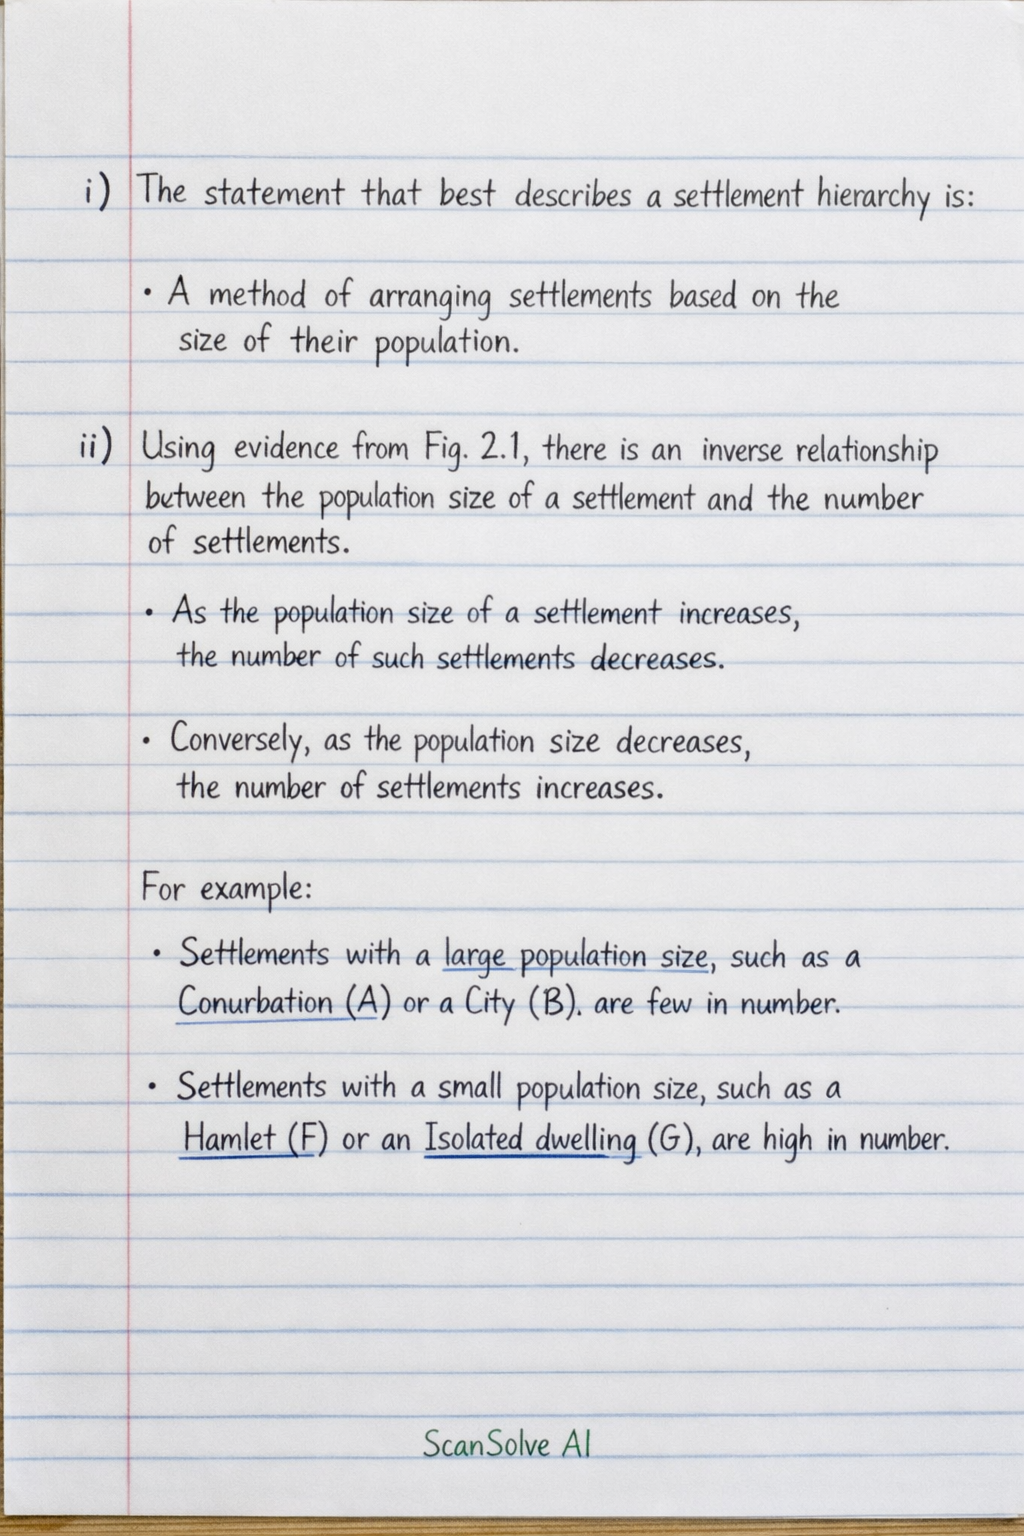 i) The statement that best describes a settlement hierarchy is:
• A method of arranging settlements based on the
size of their population.
ii) Using evidence from Fig. 2.1, there is an inverse relationship
between the population size of a settlement and the number
of settlements.
• As the population size of a settlement increases,
the number of such settlements decreases.
• Conversely, as the population size decreases,
the number of settlements increases.
For example:
• Settlements with a large population size, such as a
Conurbation (A) or a City (B). are few in number.
• Settlements with a small population size, such as a
Hamlet (F) or an Isolated dwelling (G), are high in number.
ScanSolve AI